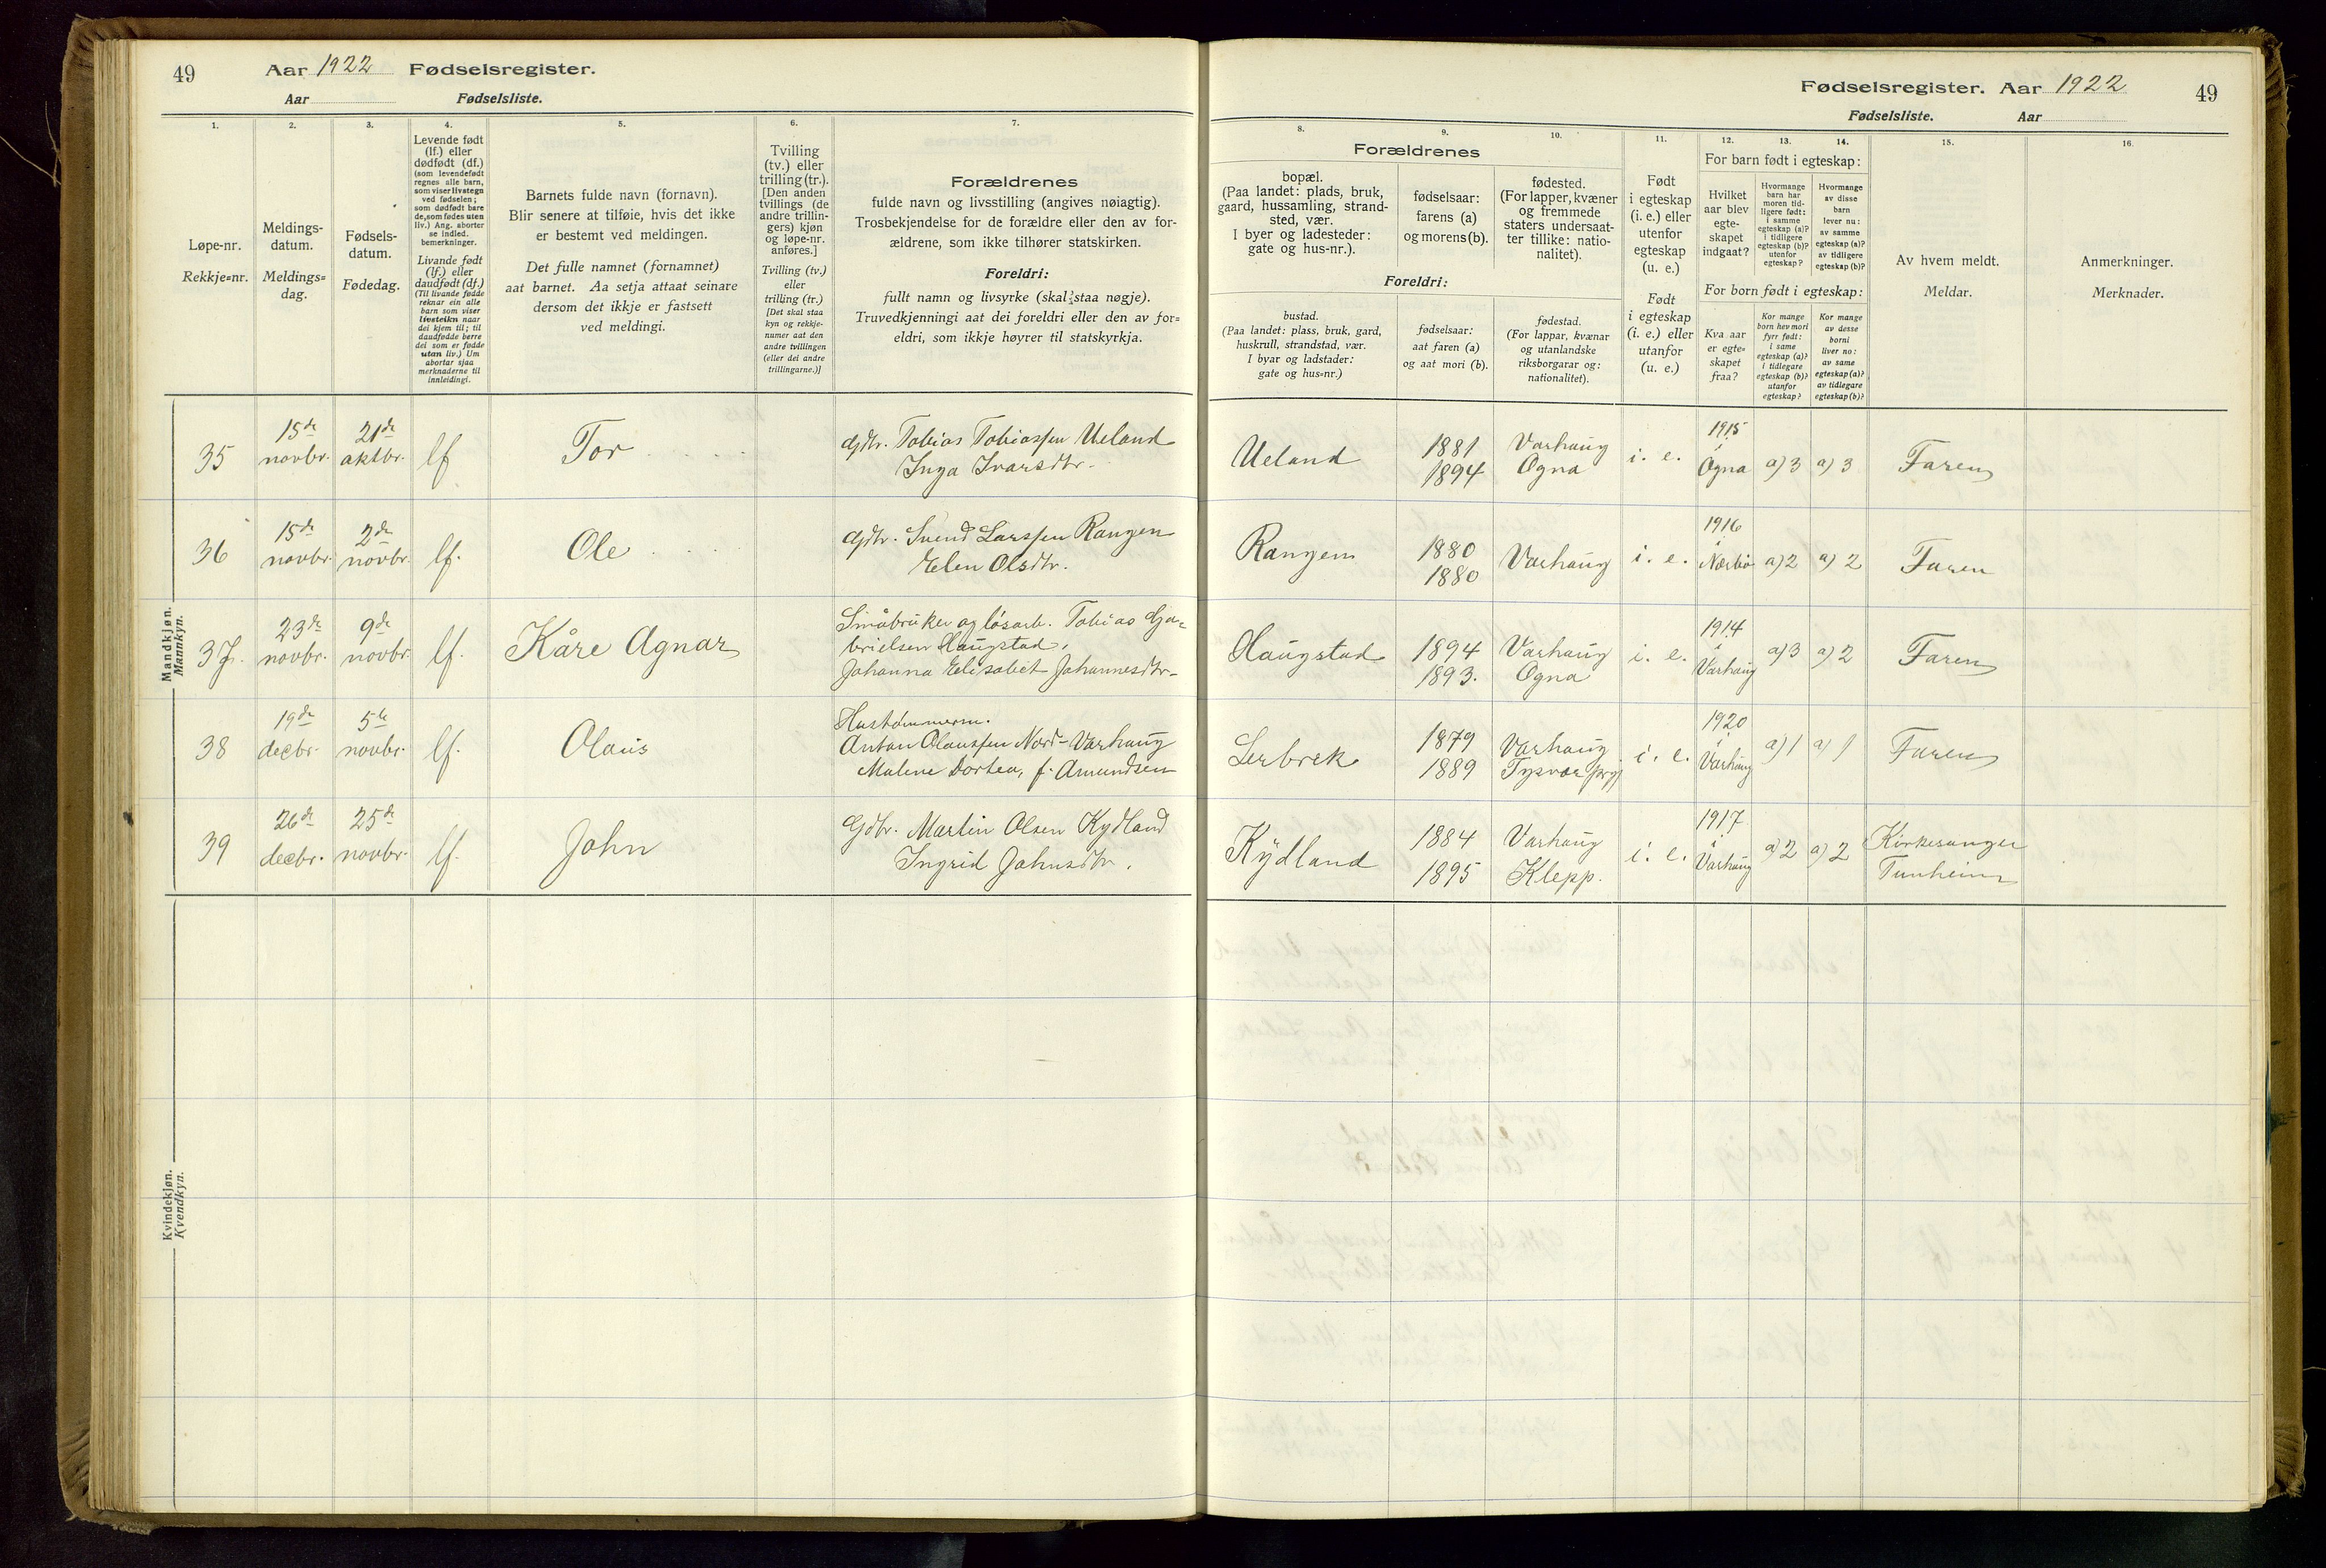 49
Aar 1922 Fødselsregister.
Aar Fødselsliste.
Fødselsregister. Aar 1922
49
Fødselsliste. Aar
1. 2. 3. 4. 5. 6. 7.
Løpe-nr.
Rekkje=nr.
Meldings-
datum.
Meldings=
dag.
Fødsels-
datum.
Fødedag.
Levende født
(lf.) eller
dødfødt (df.)
(som levendefødt
regnes alle barn,
som viser livstegn
ved fødselen;
som dødfødt bare
de, som fødes uten
liv.) Ang. aborter
se indled.
bemerkninger.
Livande født
(lf.) eller
daudfødt (df.)
(Til livande fødde
reknar ein alle
barn som viser
livsteikn naar
dei kjem til; til
daudfødde berre
dei som er fødde
utan liv.) Um
abortar sjaa
merknaderne til
innleidingi.
Barnets fulde navn (fornavn).
Blir senere at tilføie, hvis det ikke
er bestemt ved meldingen.
Det fulle namnet (fornamnet)
aat barnet. Aa setja attaat seinare
dersom det ikkje er fastsett
ved meldingi.
Tvilling
(tv.) eller
trilling (tr.).
[Den anden
tvillings (de
andre trillin-
gers) kjøn
og løpe-nr.
anføres.]
Tvilling (tv.)
eller
trilling (tr.)
[Det skal staa
kyn og rekkje-
numer aat den
andre tvillingen
(eller dei andre
trillingarne.)]
Forældrenes
fulde navn og livsstilling (angives nøiagtig).
Trosbekjendelse for de forældre eller den av for-
ældrene, som ikke tilhører statskirken.
Foreldri:
fullt namn og livsyrke (skal staa nøgje).
Truvedkjenningi aat dei foreldri eller den av for=
eldri, som ikkje høyrer til statskyrkja.
8. 9. 10. 11. 12. 13. 14. 15. 16.
Forældrenes
bopæl.
(Paa landet: plads, bruk,
gaard, hussamling, strand-
sted, vær.
I byer og ladesteder:
gate og hus-nr.).
fødselsaar:
farens (a)
og morens (b).
fødested.
(For lapper, kvæner
og fremmede
staters undersaat-
ter tillike: natio-
nalitet).
Foreldri:
bustad.
(Paa landet: plass, bruk, gard,
huskrull, strandstad, vær.
I byar og ladstader:
gate og hus=nr.)
fødselsaar:
aat faren (a)
og aat mori (b).
fødestad.
(For lappar, kvænar
og utanlandske
riksborgarar og:
nationalitet).
Født
i egteskap
(i. e.) eller
utenfor
egteskap
(u. e.)
Født
i egteskap
(i. e.) eller
utanfor
(u. e.)
For barn født i egteskap:
Hvilket
aar blev
egte-
skapet
indgaat?
Hvormange
barn har
moren tid-
ligere født:
i samme
egteskap (a)?
i tidligere
egteskap (b)?
utenfor
egteskap?
Hvormange
av disse
barn
lever nu:
av samme
egteskap (a)?
av tidligere
egteskap (b)?
For born født i egteskap:
Kva aar
er egte=
skapet
fraa?
Kor mange
born hev mori
fyrr født:
i same
egteskap (a)?
i tidlegare
egteskap (b)?
utanfor
egteskap?
Kor mange
av desse
borni
liver no:
av same
egteskap (a)?
av tidlegare
egteskap (b)?
Av hvem meldt.
Meldar.
Anmerkninger.
Merknader.
Mandkjøn.
Mannkyn.
35 15de novbr. 21de aktbr. lf Tor Gdbr. Tobias Tobiassen Ueland
Inga Ivarsdtr.
Ueland 1881 Varhaug 1894 Ogna i. e. 1915 i Ogna a) 3 a) 3 Faren
36 15de novbr. 2de novbr. lf. Ole Gdbr. Svend Larssen Rangen
Elen Olsdtr.
Rangen 1880 1880 Varhaug i. e. 1916 i Nærbø a) 2 a) 2 Faren
37. 23de novbr. 9de novbr. lf. Kåre Agnar Småbruker og løsarb. Tobias Ga=
brielsen Haugstad,
Johanna Elisabet Johannesdtr.
Haugstad 1894 Varhaug 1893. Ogna i. e. 1914 i Varhaug a) 3 a) 2 Faren
38 19de decbr. 5te novbr. lf. Olaus Hustømmerm.
Anton Olaussen Nord-Varhaug
Malene Dortea, f. Amundsen
Lerbrek 1879 Varhaug 1889 Tysvær prgj i. e. 1920 i Varhaug a) 1 a) 1 Faren
39 26de decbr. 25de novbr. lf. John Gdbr. Martin Olsen Kydland
Ingrid Johnsdtr.
Kydland 1884 Varhaug 1895 Klepp. i. e. 1917 i Varhaug a) 2 a) 2 Kirkesanger
Tunheim
Kvindekjøn.
Kvendkyn.